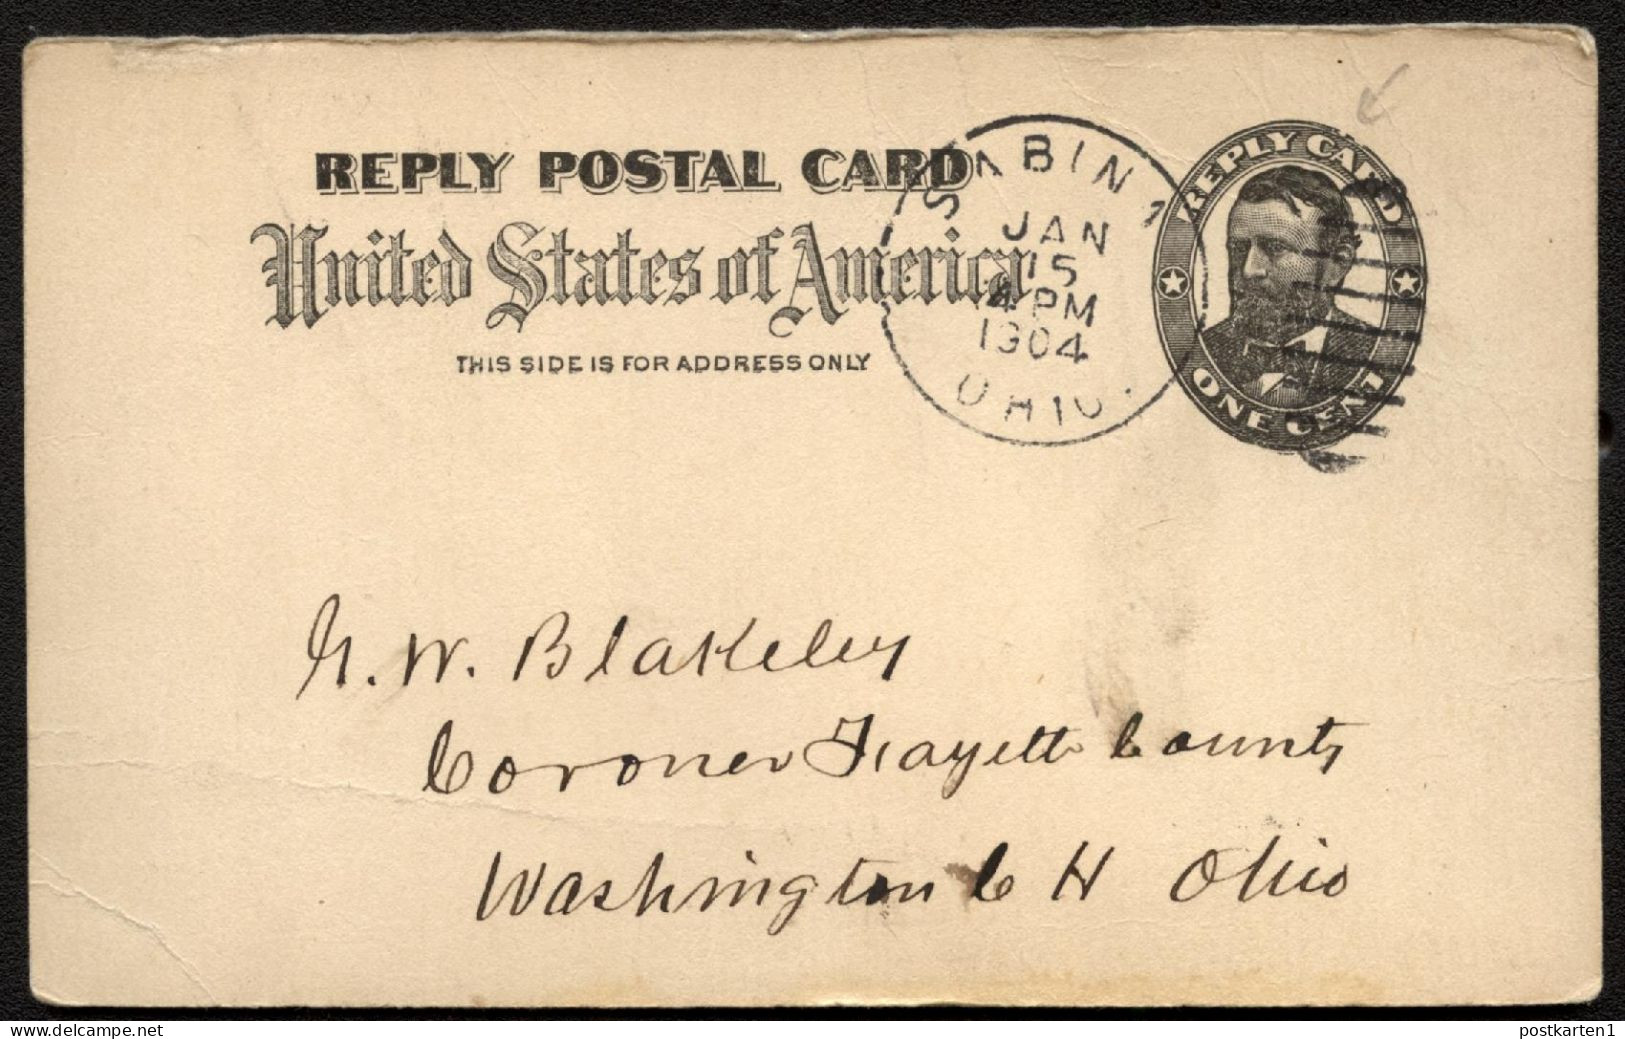 REPLY POSTAL CARD
United States of America
THIS SIDE IS FOR ADDRESS ONLY
SABINA
JAN
15
4 PM
1904
OHIO.
REPLY CARD
ONE CENT
G. W. Blakeley
Coroner Fayette County
Washington C H Ohio
www.delcampe.net
postkarten1